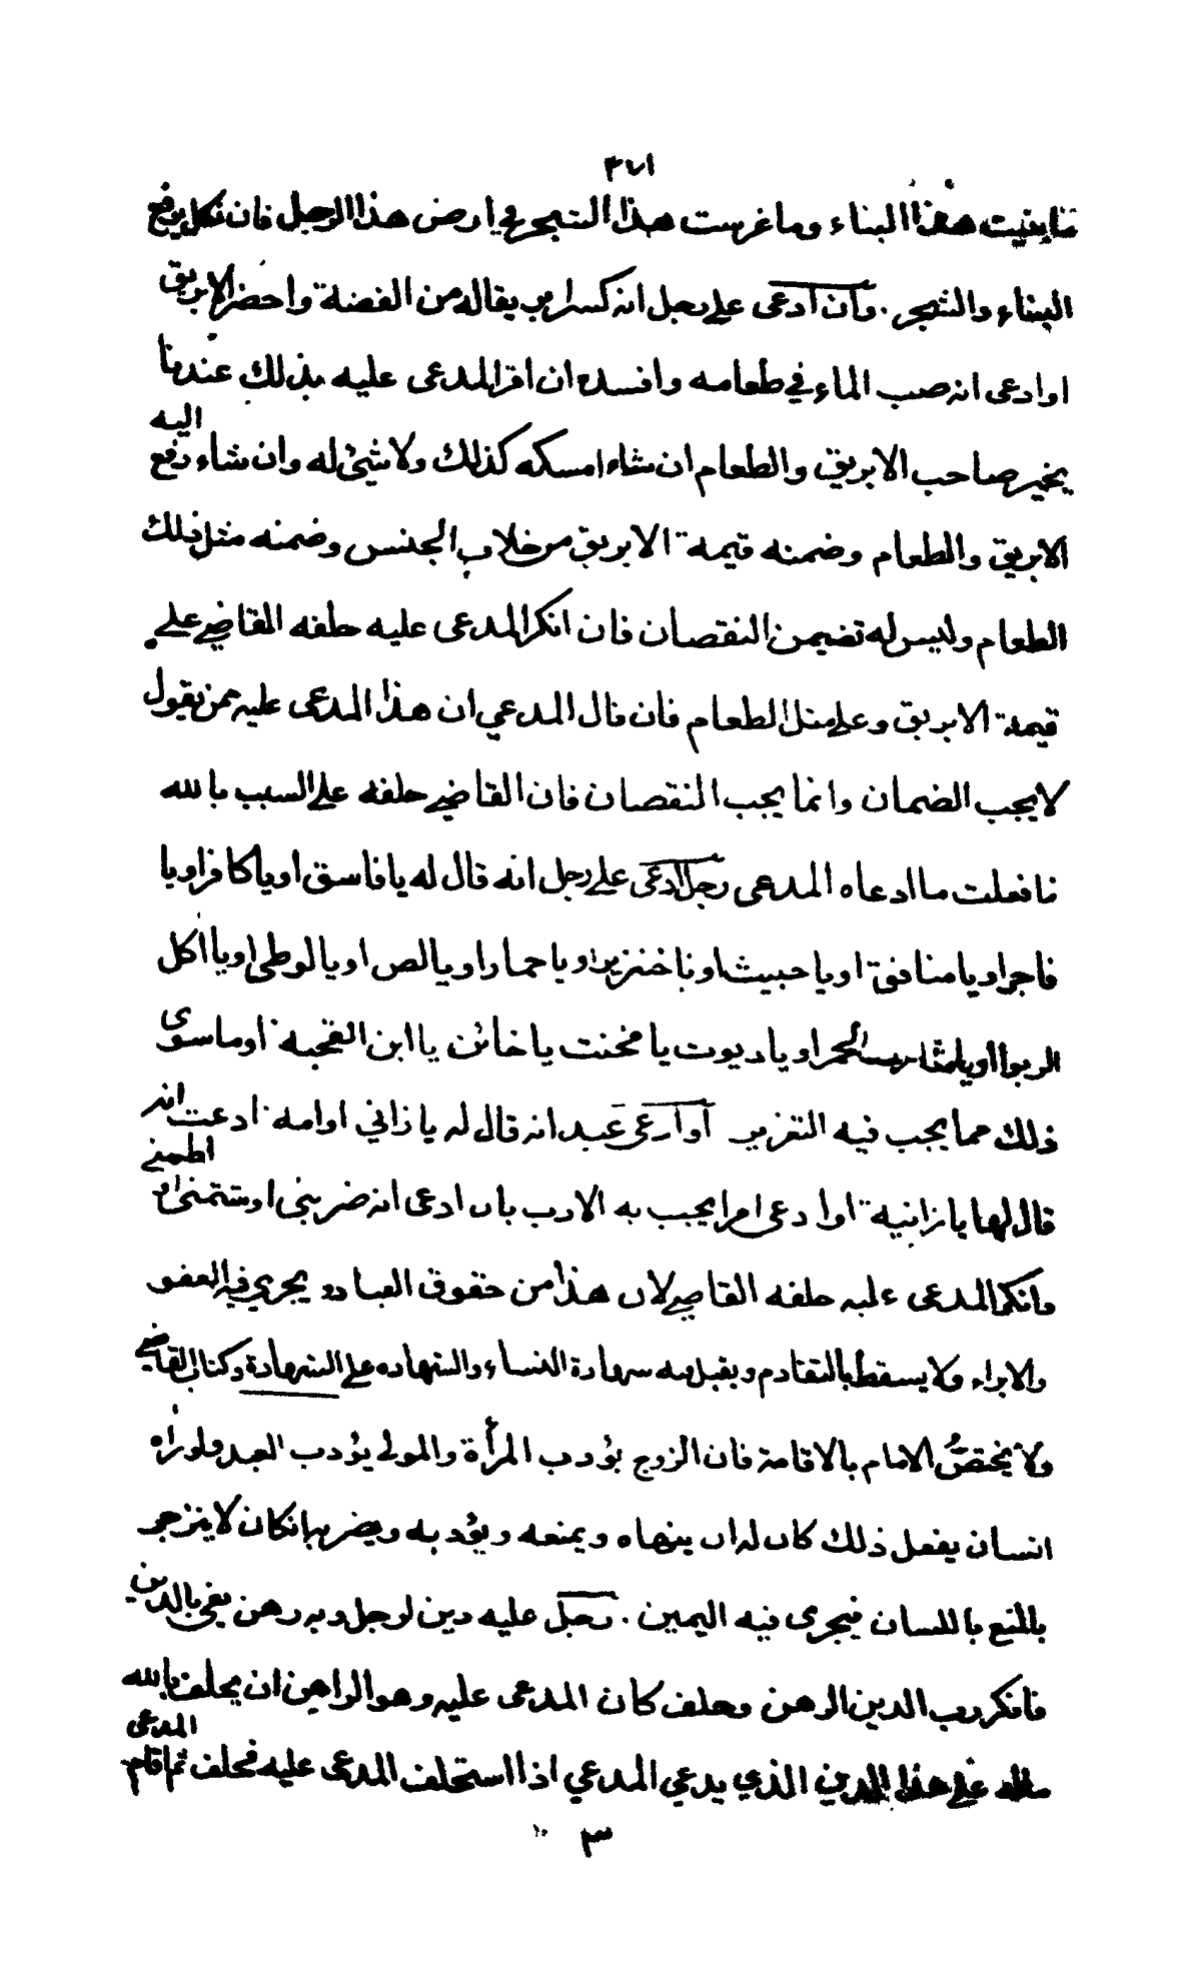 ٣٧١
ما بنيت هذا البناء وما غرست هذا الشجر في ارض هذا الرجل فان نكل يرفع
البناء والشجر . وان ادعى على رجل انه كسر ابريقا له من الفضة واحضر الابريق
او ادعى انه صب الماء في طعامه وافسده ان اقر المدعى عليه بذلك عندنا
يخير صاحب الابريق والطعام ان شاء امسكه كذلك ولا شيئ له وان شاء دفع اليه
الابريق والطعام وضمنه قيمة الابريق من خلاف الجنس وضمنه مثل ذلك
الطعام وليس له تضيمن النقصان فان انكر المدعى عليه حلفه القاضي على
قيمة الابريق وعلى مثل الطعام فان قال المدعي ان هذا المدعى عليه ممن يقول
لا يجب الضمان وانما يجب النقصان فان القاضي حلفه على السبب بالله
ما فعلت ما ادعاه المدعى رجل ادعى على رجل انه قال له يا فاسق او يا كافر او يا
فاجر او يا منافق او يا خبيث او يا خنزير او يا حمار او يا لص او يا لوطى او يا اكل
الربوا او يا شارب الخمر او يا ديوث يا مخنث يا خائن يا ابن القحبه او ما سوى
ذلك مما يجب فيه التعزير او ادعى عبد انه قال له يا زاني او امة ادعت انه
قال لها يا زانية او ادعى امرا يجب به الادب بان ادعى انه ضربنى او شتمنى او لطمنى
وانكر المدعى عليه حلفه القاضي لان هذا من حقوق العباد و يجري فيه العفو
والابراء ولا يسقط بالتقادم ويقبل فيه شهادة النساء والشهاده على الشهادة وكتاب القاضي
ولا يختص الامام بالاقامة فان الزوج يؤدب المرأة والمولى يؤدب العبد ولو راه
انسان يفعل ذلك كان له ان ينهاه ويمنعه ويؤدبه ويضربه ان كان لا ينزجر
بالمنع باللسان فيجرى فيه اليمين . رجل عليه دين لرجل وبه رهن يفي بالدين
فانكر رب الدين الرهن وحلف كان المدعى عليه وهو الراهن ان يحلف بالله
ماله علي هذا الدين الذي يدعي المدعي اذا استحلف المدعى عليه فحلف ثم اقام المدعى
٣